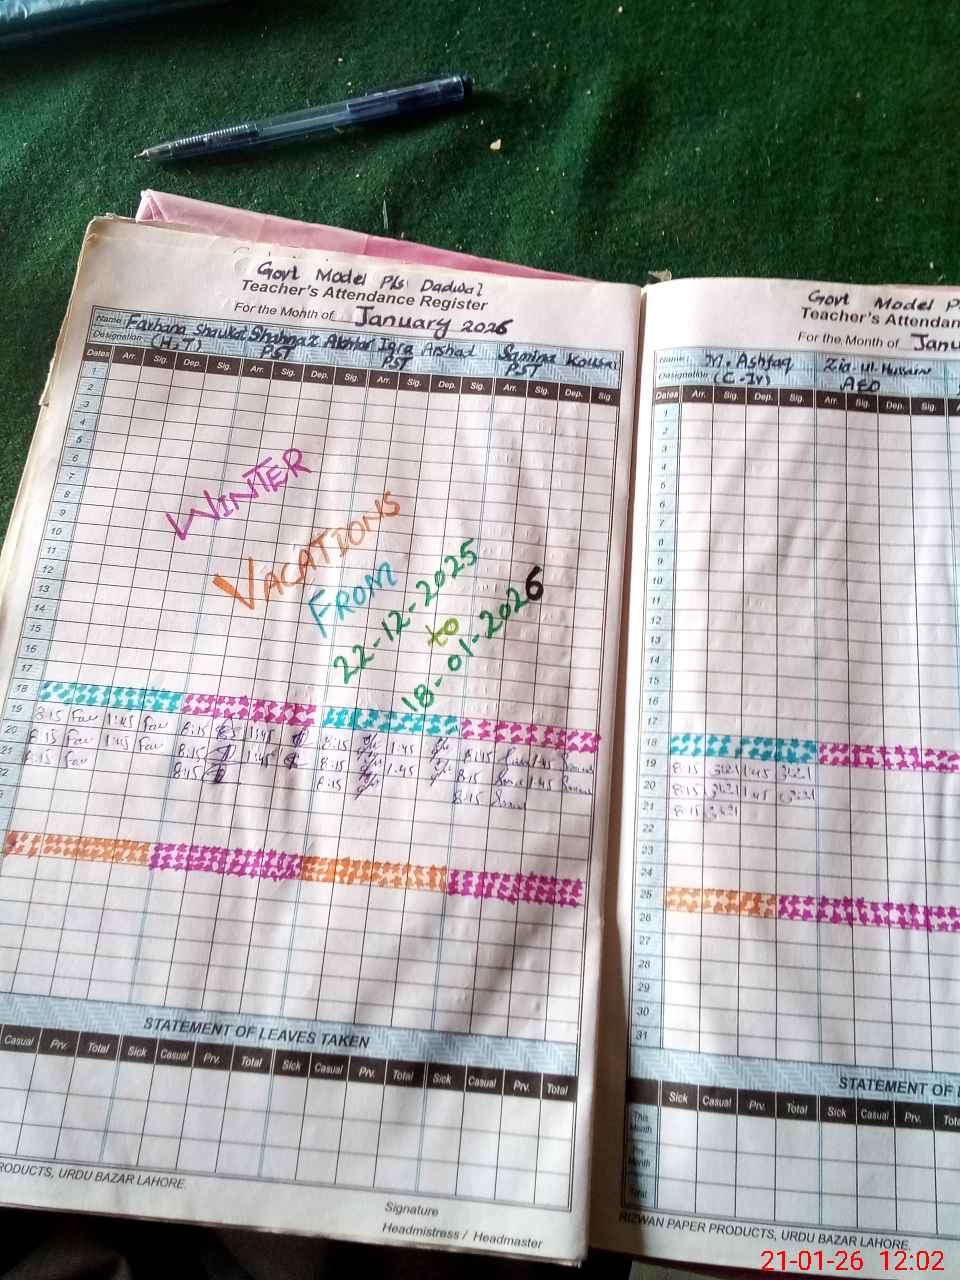 Govt Model P/s Dadwal
Teacher's Attendance Register
For the Month of January 2026
Name: Farhana Shaukat Shahnaz Akhtar Iqra Arshad Samina Kousar
Designation: (H.T) PST PST PST
Dates Arr. Sig. Dep. Sig. Arr. Sig. Dep. Sig. Arr. Sig. Dep. Sig.
1
2
3
4
5
6
7
8
9
10
11
12
13
14
15
16
17
18
19 8:15 Far 1:45 Far 8:15 1:45 8:15 1:45 8:15 1:45
20 8:15 Far 1:45 Far 8:15 1:45 8:15 1:45 8:15 1:45
21 8:15 Far 8:15 8:15 8:15
WINTER
VACATIONS
FROM
22-12-2025
to
18-01-2026
STATEMENT OF LEAVES TAKEN
Casual Prv. Total Sick Casual Prv. Total Sick Casual Prv. Total Sick Casual Prv. Total
RODUCTS, URDU BAZAR LAHORE.
Signature
Headmistress / Headmaster
Govt Model P
Teacher's Attendan
For the Month of Janu
Name: M. Ashfaq Zia ul Hussain
Designation: (C-IV) AEO
Dates Arr. Sig. Dep. Sig. Arr. Sig. Dep. Sig.
1
2
3
4
5
6
7
8
9
10
11
12
13
14
15
16
17
18
19 8:15 1:45
20 8:15 1:45
21 8:15
22
23
24
25
26
27
28
29
30
31
STATEMENT OF L
Sick Casual Prv. Total Sick Casual Prv. Tota
This Month
Prv. Month
Total
RIZWAN PAPER PRODUCTS, URDU BAZAR LAHORE.
21-01-26 12:02